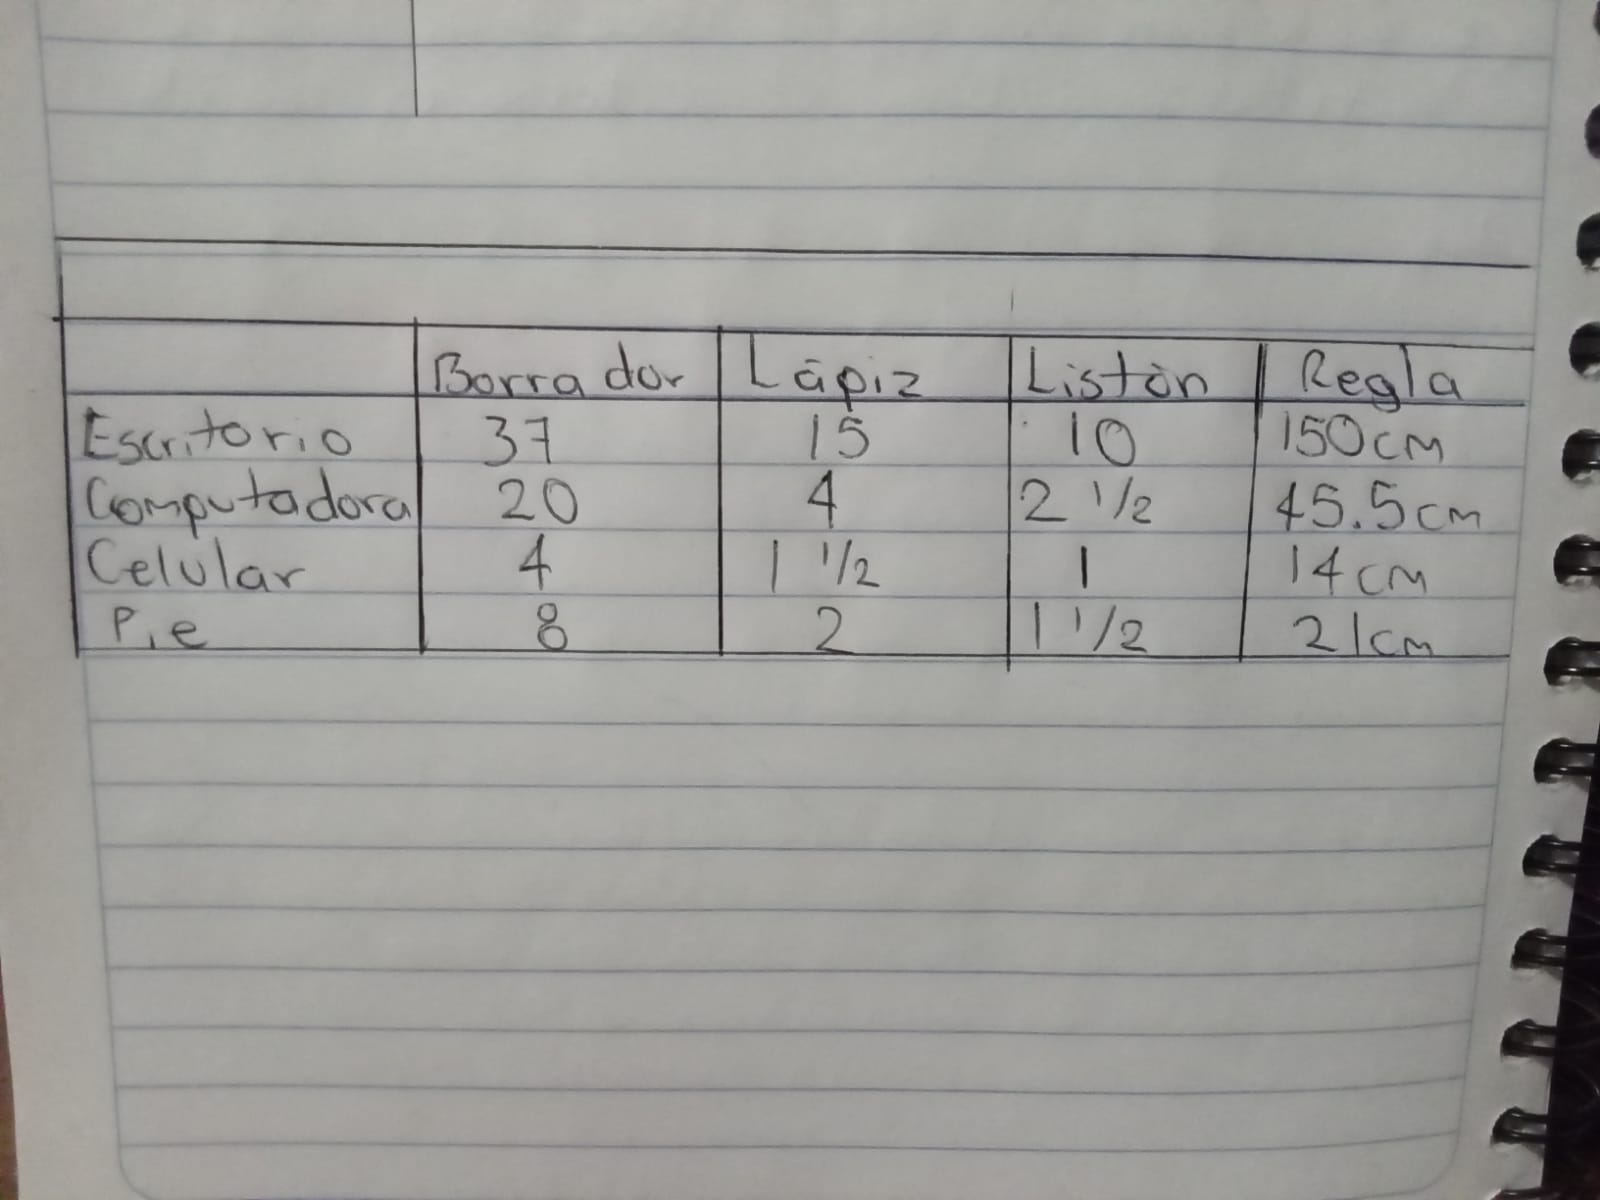 Borrador Lápiz Listón Regla
Escritorio 37 15 10 150cm
Computadora 20 4 2 1/2 45.5cm
Celular 4 1 1/2 1 14cm
Pie 8 2 1 1/2 21cm